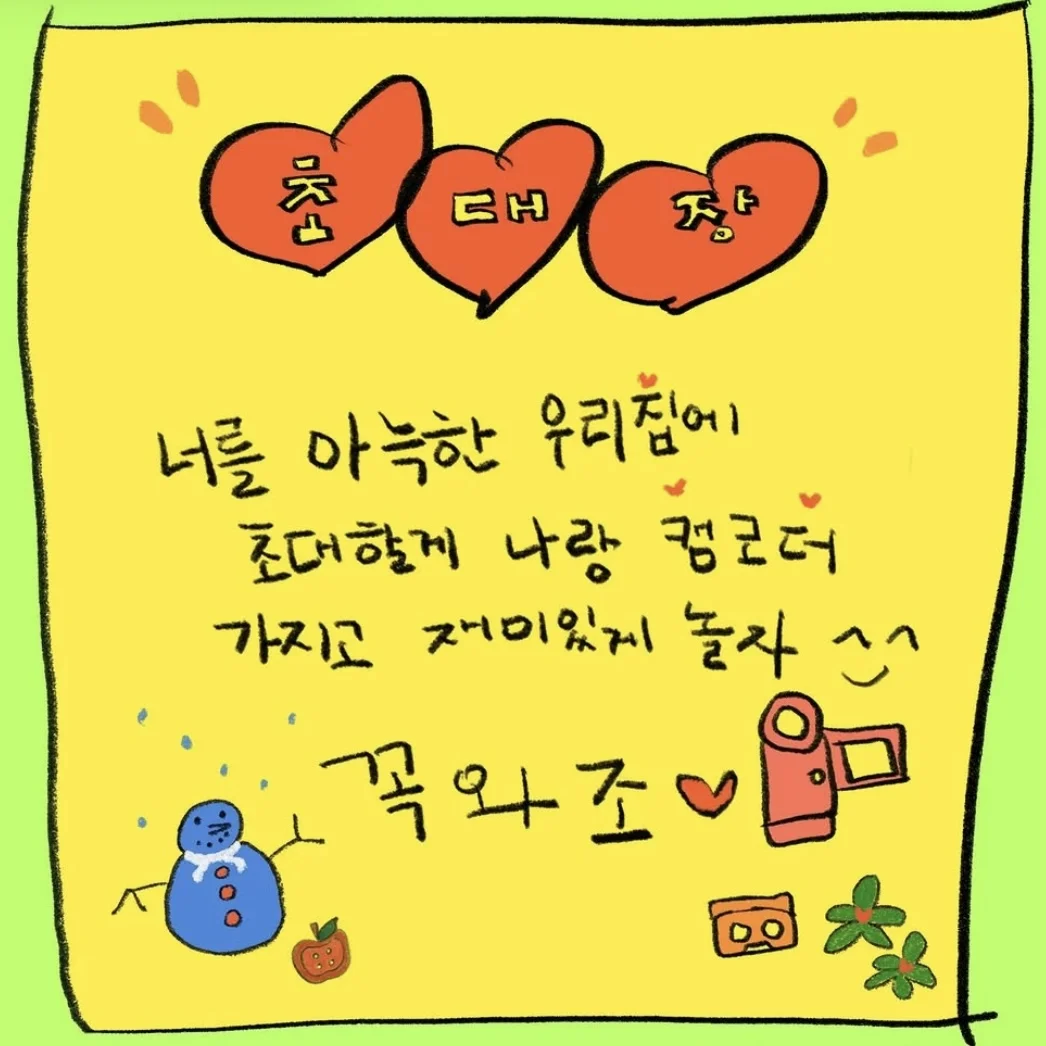 초대장
너를 아늑한 우리집에
초대할게 나랑 캠코더
가지고 재미있게 놀자 ^^
꼭 와 조